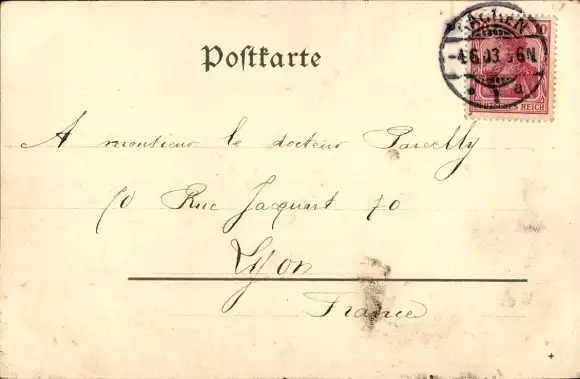 Postkarte
AACHEN
-4.6.03 5-6N
1 a
10
DEUTSCHES REICH
A monsieur le docteur Parcelly
70 Rue Jacquart 70
Lyon
France